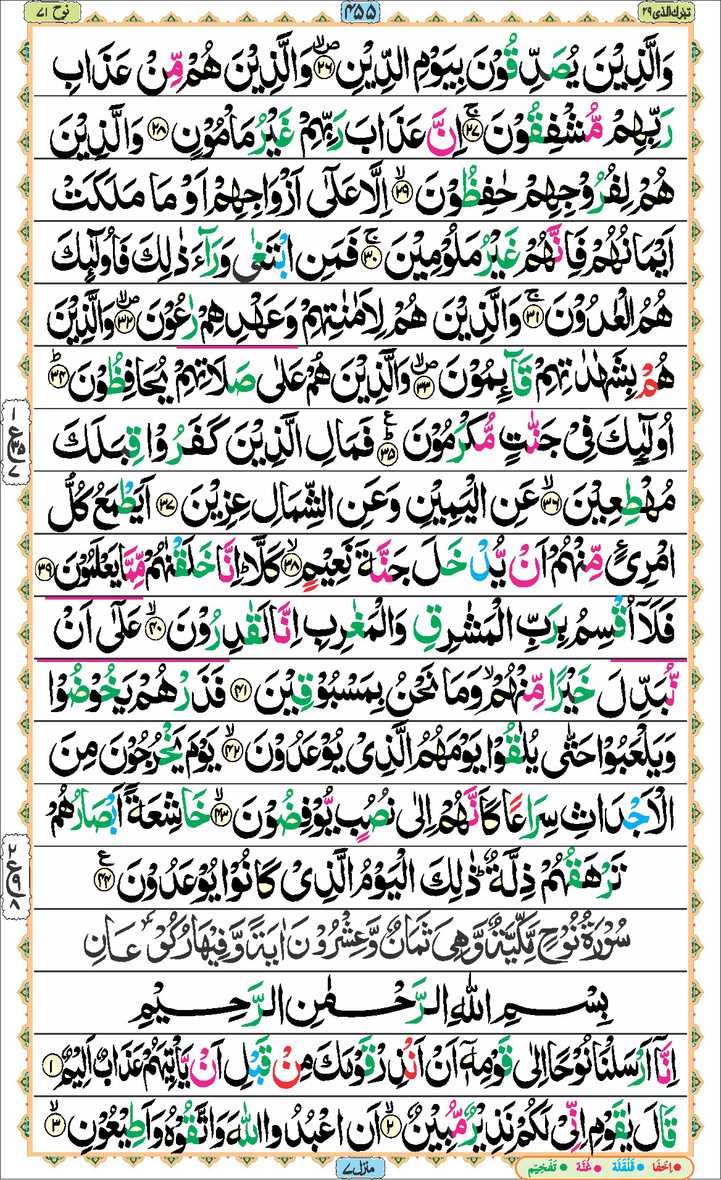 تبٰرك الذی ٢٩
٤٥٥
نوح ٧١
وَالَّذِیْنَ یُصَدِّقُوْنَ بِیَوْمِ الدِّیْنِ ﴿٢٦﴾ وَالَّذِیْنَ هُمْ مِّنْ عَذَابِ
رَبِّهِمْ مُّشْفِقُوْنَ ﴿٢٧﴾ اِنَّ عَذَابَ رَبِّهِمْ غَیْرُ مَاْمُوْنٍ ﴿٢٨﴾ وَالَّذِیْنَ
هُمْ لِفُرُوْجِهِمْ حٰفِظُوْنَ ﴿٢٩﴾ اِلَّا عَلٰۤی اَزْوَاجِهِمْ اَوْ مَا مَلَكَتْ
اَیْمَانُهُمْ فَاِنَّهُمْ غَیْرُ مَلُوْمِیْنَ ﴿٣٠﴾ فَمَنِ ابْتَغٰی وَرَآءَ ذٰلِكَ فَاُولٰٓئِكَ
هُمُ الْعٰدُوْنَ ﴿٣١﴾ وَالَّذِیْنَ هُمْ لِاَمٰنٰتِهِمْ وَعَهْدِهِمْ رٰعُوْنَ ﴿٣٢﴾ وَالَّذِیْنَ
هُمْ بِشَهٰدٰتِهِمْ قَآئِمُوْنَ ﴿٣٣﴾ وَالَّذِیْنَ هُمْ عَلٰی صَلَاتِهِمْ یُحَافِظُوْنَ ﴿٣٤﴾
اُولٰٓئِكَ فِیْ جَنّٰتٍ مُّكْرَمُوْنَ ﴿٣٥﴾ فَمَالِ الَّذِیْنَ كَفَرُوْا قِبَلَكَ
مُهْطِعِیْنَ ﴿٣٦﴾ عَنِ الْیَمِیْنِ وَعَنِ الشِّمَالِ عِزِیْنَ ﴿٣٧﴾ اَیَطْمَعُ كُلُّ
امْرِئٍ مِّنْهُمْ اَنْ یُّدْخَلَ جَنَّةَ نَعِیْمٍ ﴿٣٨﴾ كَلَّا ؕ اِنَّا خَلَقْنٰهُمْ مِّمَّا یَعْلَمُوْنَ ﴿٣٩﴾
فَلَاۤ اُقْسِمُ بِرَبِّ الْمَشٰرِقِ وَالْمَغٰرِبِ اِنَّا لَقٰدِرُوْنَ ﴿٤٠﴾ عَلٰۤی اَنْ
نُّبَدِّلَ خَیْرًا مِّنْهُمْ ۙ وَمَا نَحْنُ بِمَسْبُوْقِیْنَ ﴿٤١﴾ فَذَرْهُمْ یَخُوْضُوْا
وَیَلْعَبُوْا حَتّٰی یُلٰقُوْا یَوْمَهُمُ الَّذِیْ یُوْعَدُوْنَ ﴿٤٢﴾ یَوْمَ یَخْرُجُوْنَ مِنَ
الْاَجْدَاثِ سِرَاعًا كَاَنَّهُمْ اِلٰی نُصُبٍ یُّوْفِضُوْنَ ﴿٤٣﴾ خَاشِعَةً اَبْصَارُهُمْ
تَرْهَقُهُمْ ذِلَّةٌ ؕ ذٰلِكَ الْیَوْمُ الَّذِیْ كَانُوْا یُوْعَدُوْنَ ﴿٤٤﴾
سُوْرَةُ نُوْحٍ مَّكِّیَّةٌ وَّهِیَ ثَمَانٌ وَّعِشْرُوْنَ اٰیَةً وَّفِیْهَا رُكُوْعَانِ
بِسْمِ اللّٰهِ الرَّحْمٰنِ الرَّحِیْمِ
اِنَّاۤ اَرْسَلْنَا نُوْحًا اِلٰی قَوْمِهٖۤ اَنْ اَنْذِرْ قَوْمَكَ مِنْ قَبْلِ اَنْ یَّاْتِیَهُمْ عَذَابٌ اَلِیْمٌ ﴿١﴾
قَالَ یٰقَوْمِ اِنِّیْ لَكُمْ نَذِیْرٌ مُّبِیْنٌ ﴿٢﴾ اَنِ اعْبُدُوا اللّٰهَ وَاتَّقُوْهُ وَاَطِیْعُوْنِ ﴿٣﴾
منزل ٧
• اِخفَا • قَلْقَلَة • غُنَّة • تَفْخِیْم